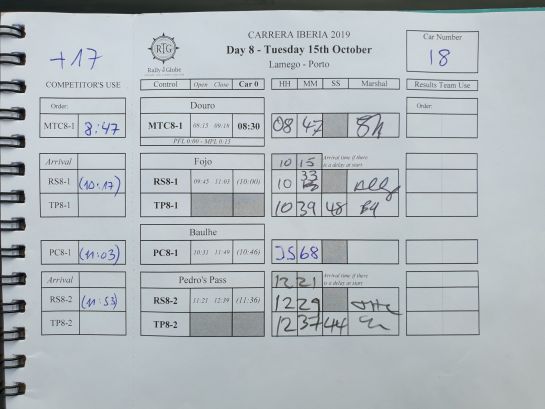 CARRERA IBERIA 2019
+17
RTG
Rally the Globe
Day 8 - Tuesday 15th October
Lamego - Porto
Car Number
18
COMPETITOR'S USE
Control Open Close Car 0 HH MM SS Marshal Results Team Use
Order: Douro Order:
MTC8-1 8:47 MTC8-1 08:15 09:18 08:30 08 47
PFL 0:00 - MPL 0:15
Arrival Fojo 10 15 Arrival time if there is a delay at start
RS8-1 (10:17) RS8-1 09:45 11:03 (10:00) 10 33
TP8-1 TP8-1 10 39 48
Baulhe
PC8-1 (11:03) PC8-1 10:31 11:49 (10:46) JS68
Arrival Pedro's Pass 12 21 Arrival time if there is a delay at start
RS8-2 (11:53) RS8-2 11:21 12:39 (11:36) 12 29
TP8-2 TP8-2 12 37 44